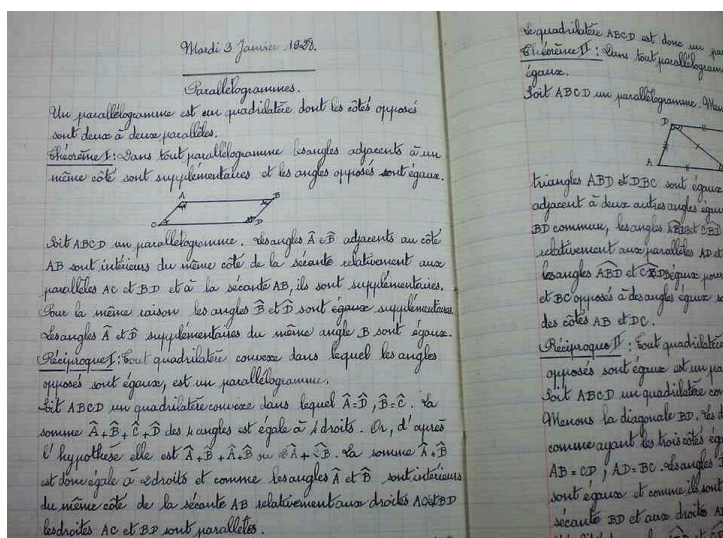 Mardi 3 Janvier 1928.
Parallélogrammes.
Un parallélogramme est un quadrilatère dont les côtés opposés
sont deux à deux parallèles.
Théorème I : Dans tout parallélogramme les angles adjacents à un
même côté sont supplémentaires et les angles opposés sont égaux.
A B
C D
Soit ABCD un parallélogramme. Les angles Â et B̂ adjacents au côté
AB sont intérieurs du même côté de la sécante relativement aux
parallèles AC et BD et à la sécante AB, ils sont supplémentaires.
Pour la même raison les angles B̂ et D̂ sont égaux supplémentaires.
Les angles Â et D̂ supplémentaires du même angle B sont égaux.
Réciproque I : Tout quadrilatère convexe dans lequel les angles
opposés sont égaux, est un parallélogramme.
Soit ABCD un quadrilatère convexe dans lequel Â=D̂, B̂=Ĉ. La
somme Â+B̂+Ĉ+D̂ des 4 angles est égale à 4 droits. Or, d'après
l'hypothèse elle est Â+B̂+Â+B̂ ou 2Â+2B̂. La somme Â+B̂
est donc égale à 2 droits et comme les angles Â et B̂ sont intérieurs
du même côté de la sécante AB relativement aux droites AC et BD
les droites AC et BD sont parallèles.
Le quadrilatère ABCD est donc un
Théorème II : Dans tout
égaux.
Soit ABCD un parallélogramme.
D
A
triangles ABD et DBC sont égaux
adjacent à deux autres angles
BD commun, les angles
relativement aux parallèles AD et
les angles ABD et
et BC opposés à des angles égaux
des côtés AB et DC.
Réciproque II : Tout quadrilatère
opposés sont égaux est un
Soit ABCD un quadrilatère
Menons la diagonale BD.
comme ayant les trois côtés
AB = CD, AD = BC. Les angles
sont égaux et comme ils sont
sécante BD et aux droites